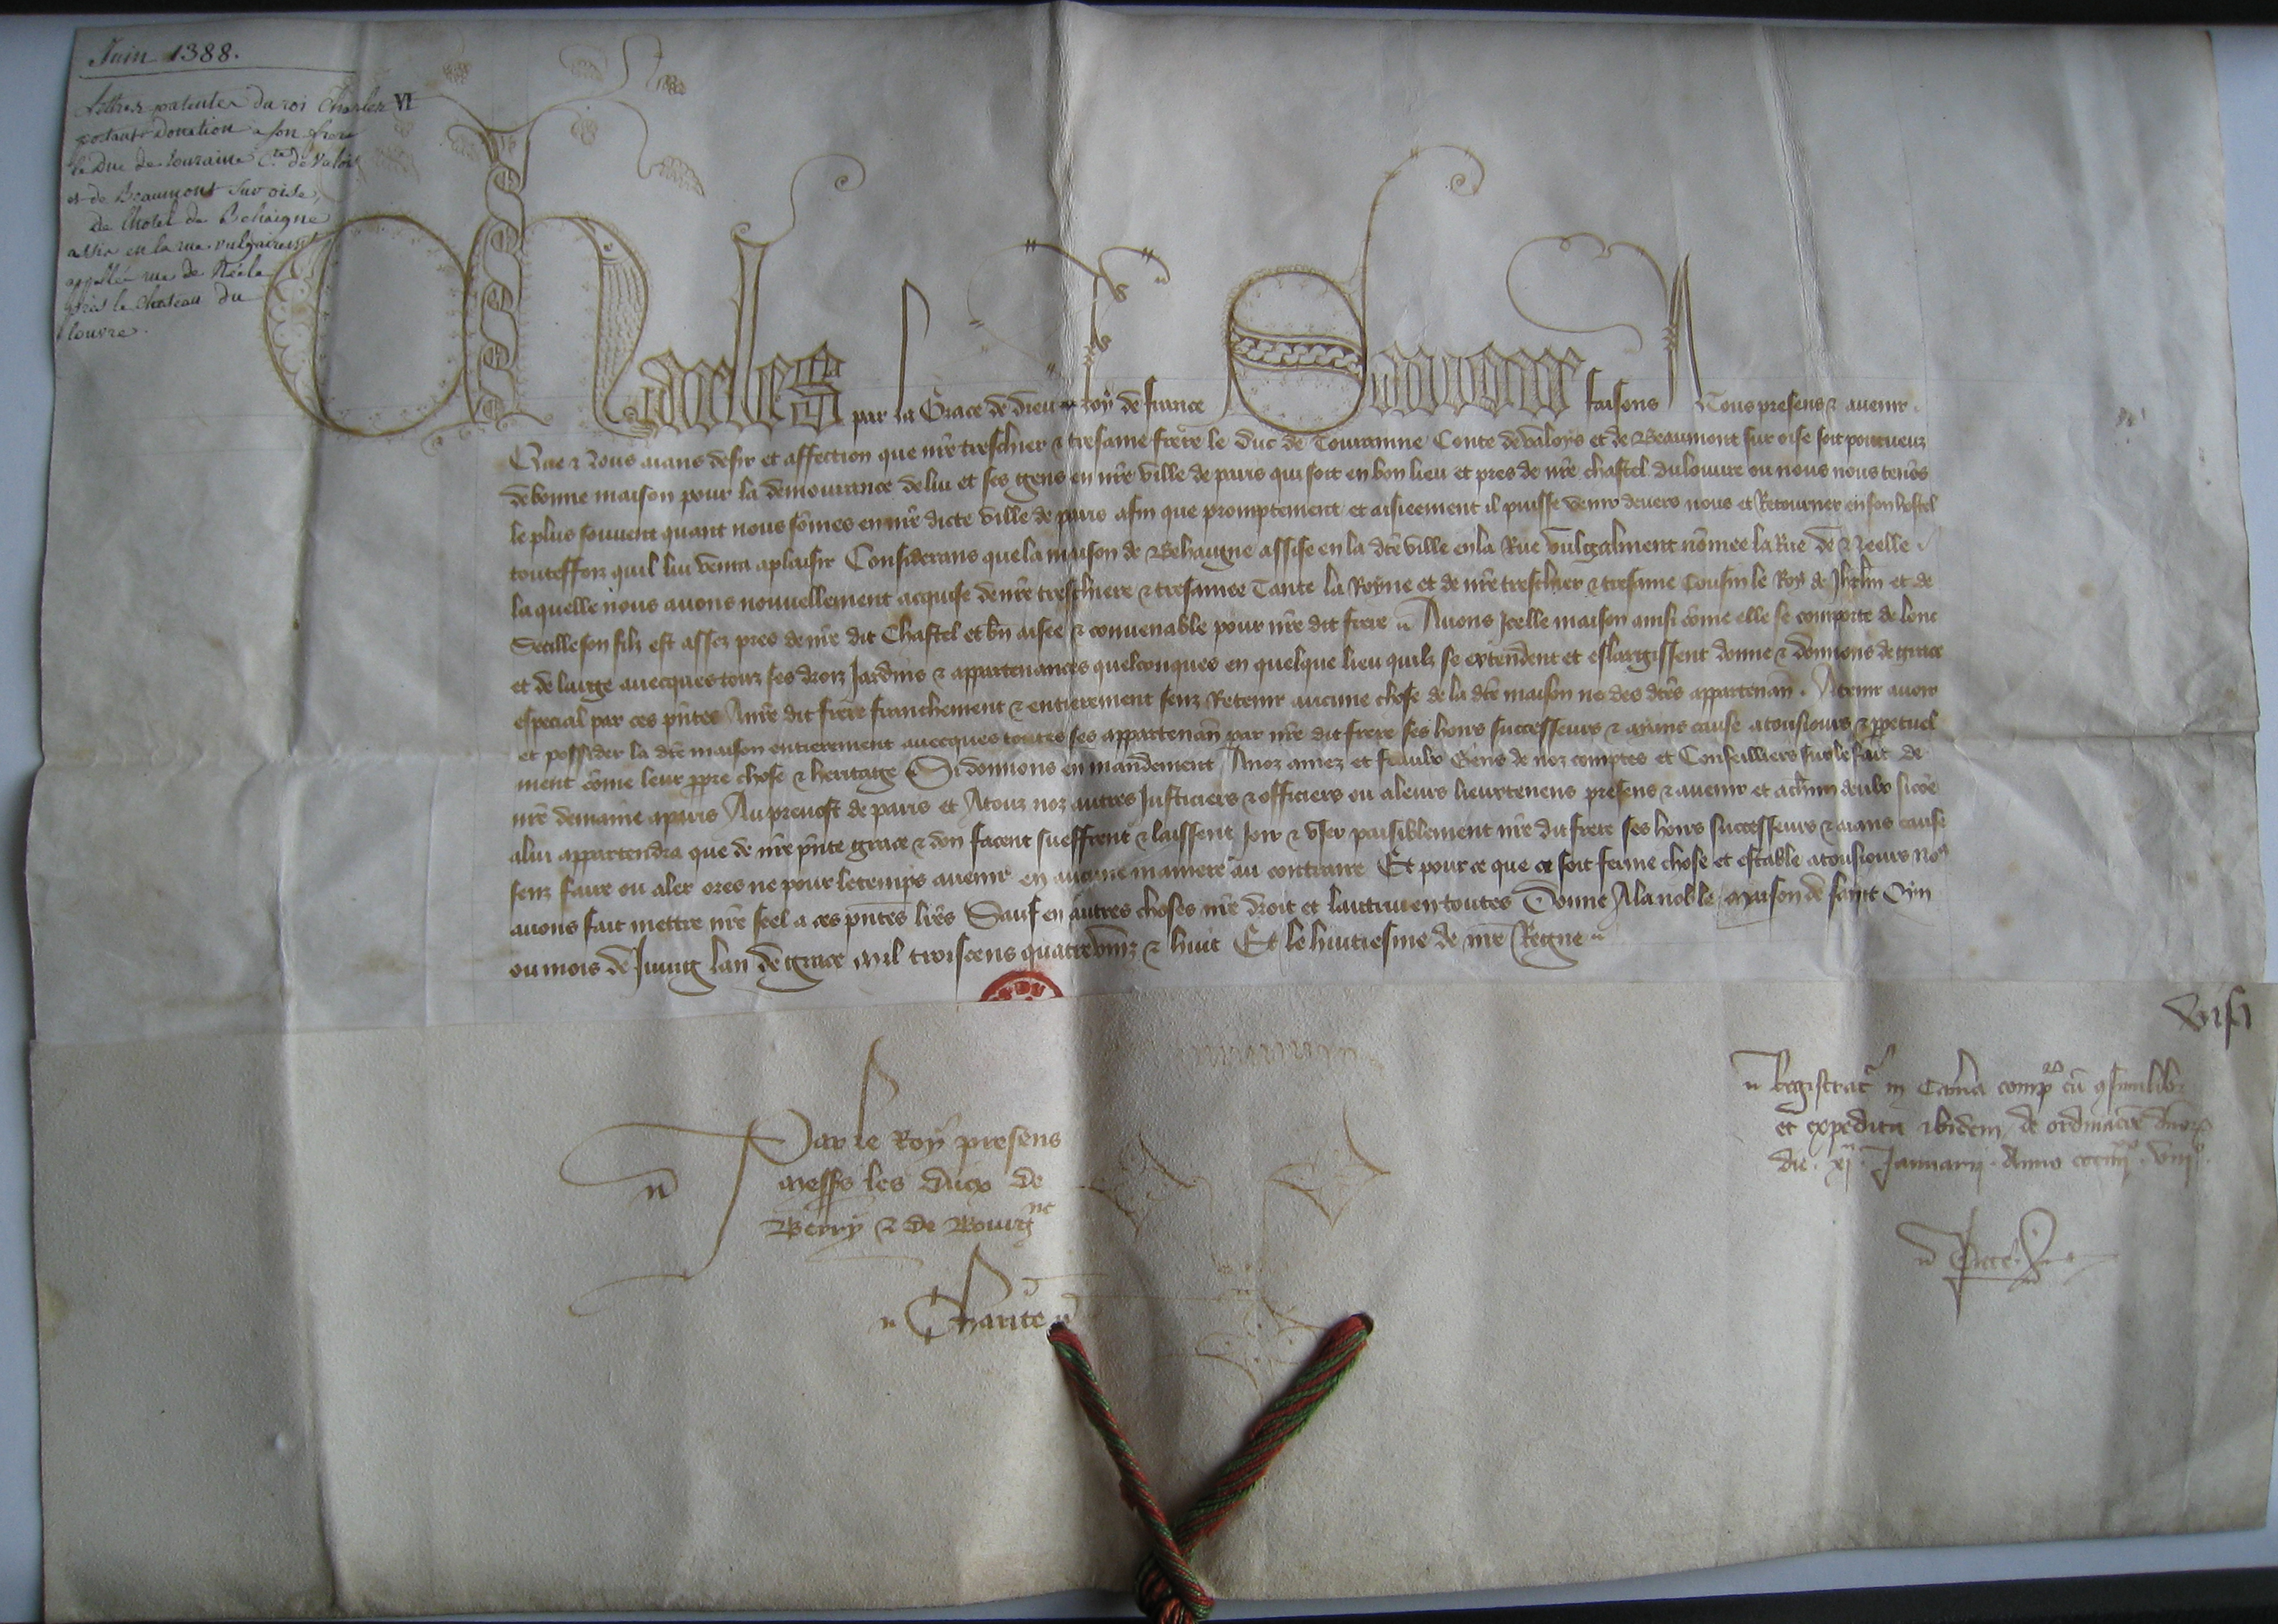 Juin 1388.
Lettres patentes du roi Charles VI
portant Donation a son frere
le Duc de touraine C.te de Valois
et de Beaumont sur oise,
de l'hotel de Behaigne
assis en la rue vulgairem.t
appellée rue de Néele
près le chateau du
louvre.
Charles par la Grace de dieu Roy de france Savoir faisons A Tous presens & avenir.
Que Nous aians desir et affection que nre treschier & tresame frere le duc de Touraine Conte de valoys et de Beaumont sur oise soit pourveuz
de bonne maison pour la demourance de lui et ses gens en nre ville de paris qui soit en bon lieu et pres de nre chastel du louvre ou nous nous tenos
le plus souvent quant nous somes en nre dicte ville de paris afin que promptement et aisieement il puisse venir devers nous et Retourner en son hostel
touteffoiz quil lui venra a plaisir Considerans que la maison de Behaigne assise en la dte ville en la Rue vulgalment nomee la Rue de Neelle
la quelle nous avons nouvellement acquise de nre treschiere & tresamee Tante la Royne et de nre treschier & tresame Cousin le Roy de Jhrlm et de
Secille son filz est assez pres de nre dit Chastel et bn aisee & convenable pour nre dit frere Avons Icelle maison ainsi come elle se comporte de lonc
et de large avecques touz ses droiz Jardins & appartenances quelconques en quelque lieu quilz se extendent et eslargissent donne & donnons de grace
especial par ces pntes A nre dit frere franchement & entierement senz Retenir aucune chose de la dte maison ne des dtes appartenan. A tenir avoir
et possider la dte maison entierement avecques toutes ses appartenan par nre dit frere ses hoirs successeurs & aians cause a tousiours & ppetuel
ment come leur ppre chose & heritage Si donnons en mandement A noz amez et feaulx Gens de noz comptes et Conseilliers sur le fait de
nre demaine a paris Au prevost de paris et A touz noz autres Justiciers & officiers ou a leurs lieuxtenens presens & avenir et a chun deulx sicoe
a lui appartendra que de nre pnte grace & don facent sueffrent & laissent Joir & user paisiblement nre dit frere ses hoirs successeurs & aians cause
senz faire ou aler ores ne pour le temps avenir en aucune maniere au contraire Et pour ce que ce soit ferme chose et estable a tousiours nos
avons fait mettre nre seel a ces pntes lres Sauf en autres choses nre droit et lautrui en toutes Donne A la noble maison de saint Oyn
ou mois de Juing lan de grace mil troiscens quatrevinz & huit Et le huitiesme de nre Regne
visa
Par le Roy presens
messrs les ducx de
Berry & de Bourgne
Charite
Registrat in Cama compor cu csimilibz
et expedita ibidem de ordinacoe dnor
die xj Januarii Anno